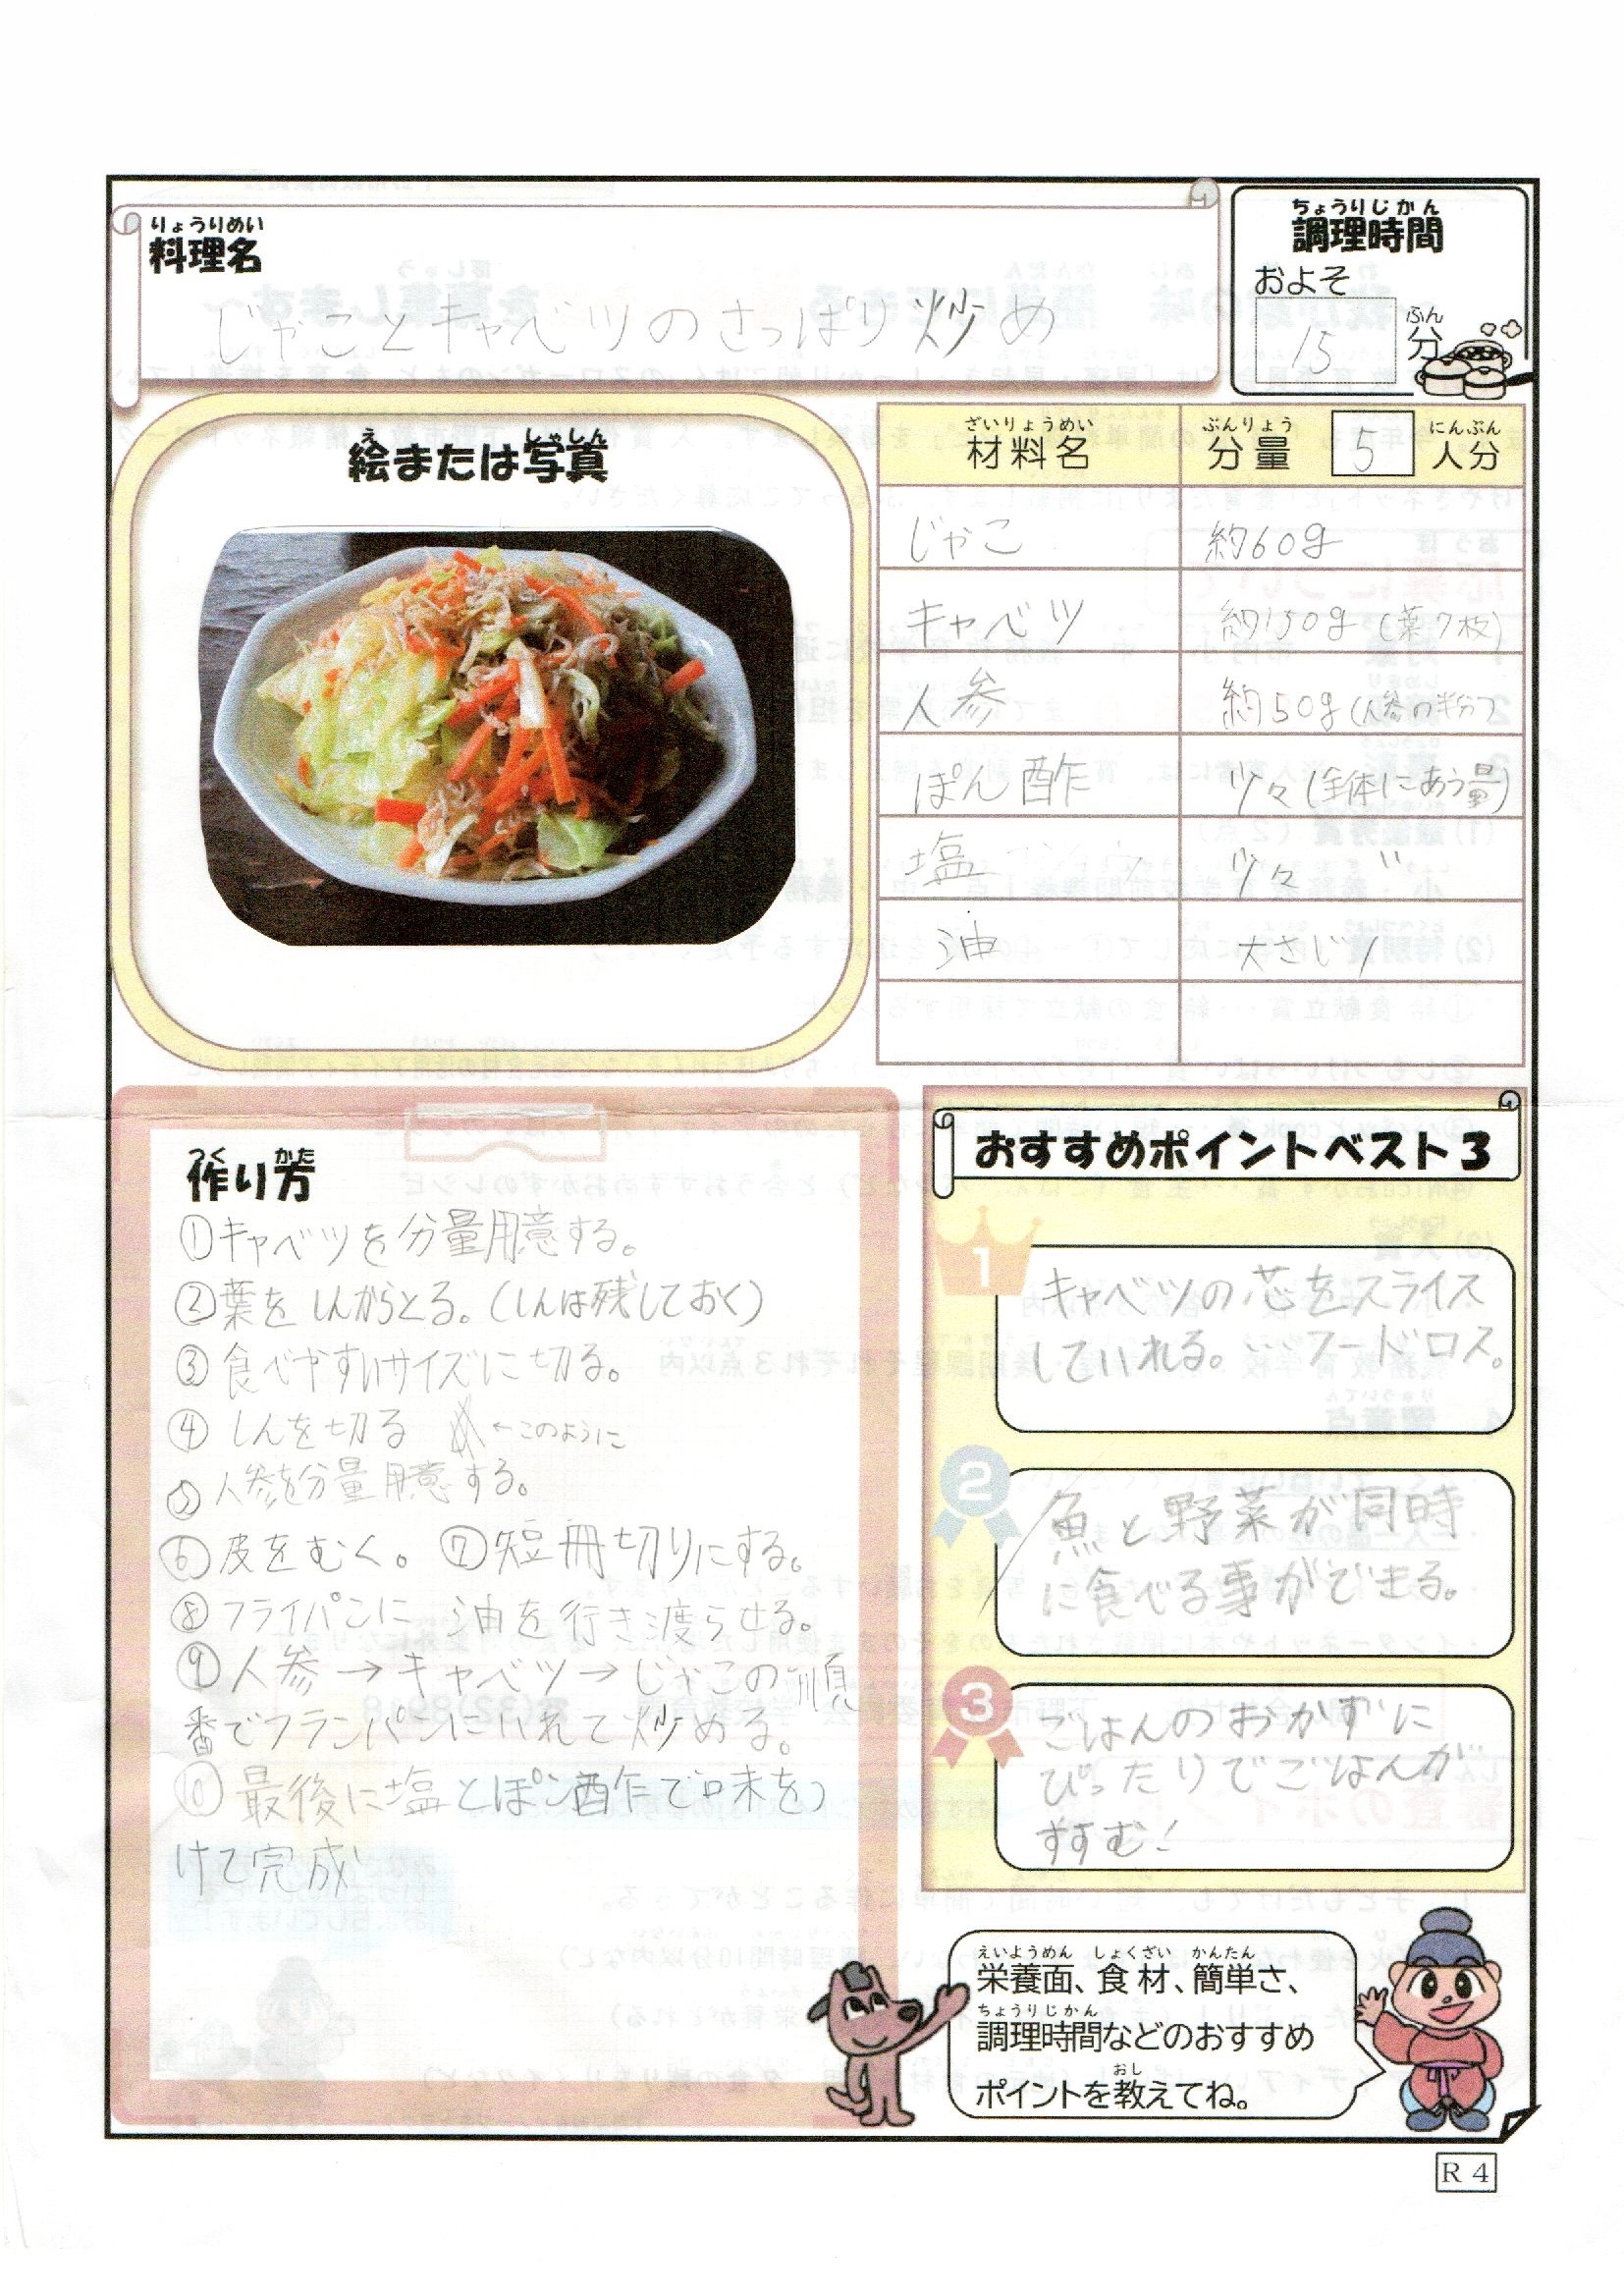 りょうりめい
料理名
じゃことキャベツのさっぱり炒め
ちょうりじかん
調理時間
およそ
15 分
ふん
え しゃしん
絵または写真
ざいりょうめい ぶんりょう にんぶん
材料名 分量 5 人分
じゃこ 約60g
キャベツ 約150g(葉7枚)
人参 約50g(人参の半分)
ぽん酢 少々(全体にあう量)
塩 少々 〃
油 大さじ1
つく かた
作り方
①キャベツを分量用意する。
②葉をしんからとる。(しんは残しておく)
③食べやすいサイズに切る。
④しんを切る ←このように
⑤人参を分量用意する。
⑥皮をむく。 ⑦短冊切りにする。
⑧フライパンに 油を行き渡らせる。
⑨人参→キャベツ→じゃこの順
番でフランパンにいれて炒める。
⑩最後に塩とぽン酢で味をつ
けて完成
おすすめポイントベスト3
1
キャベツの芯をスライス
していれる。…フードロス。
2
魚と野菜が同時
に食べる事ができる。
3
ごはんのおかずに
ぴったりでごはんが
すすむ!
えいようめん しょくざい かんたん
栄養面、食材、簡単さ、
ちょうりじかん
調理時間などのおすすめ
おし
ポイントを教えてね。
R4